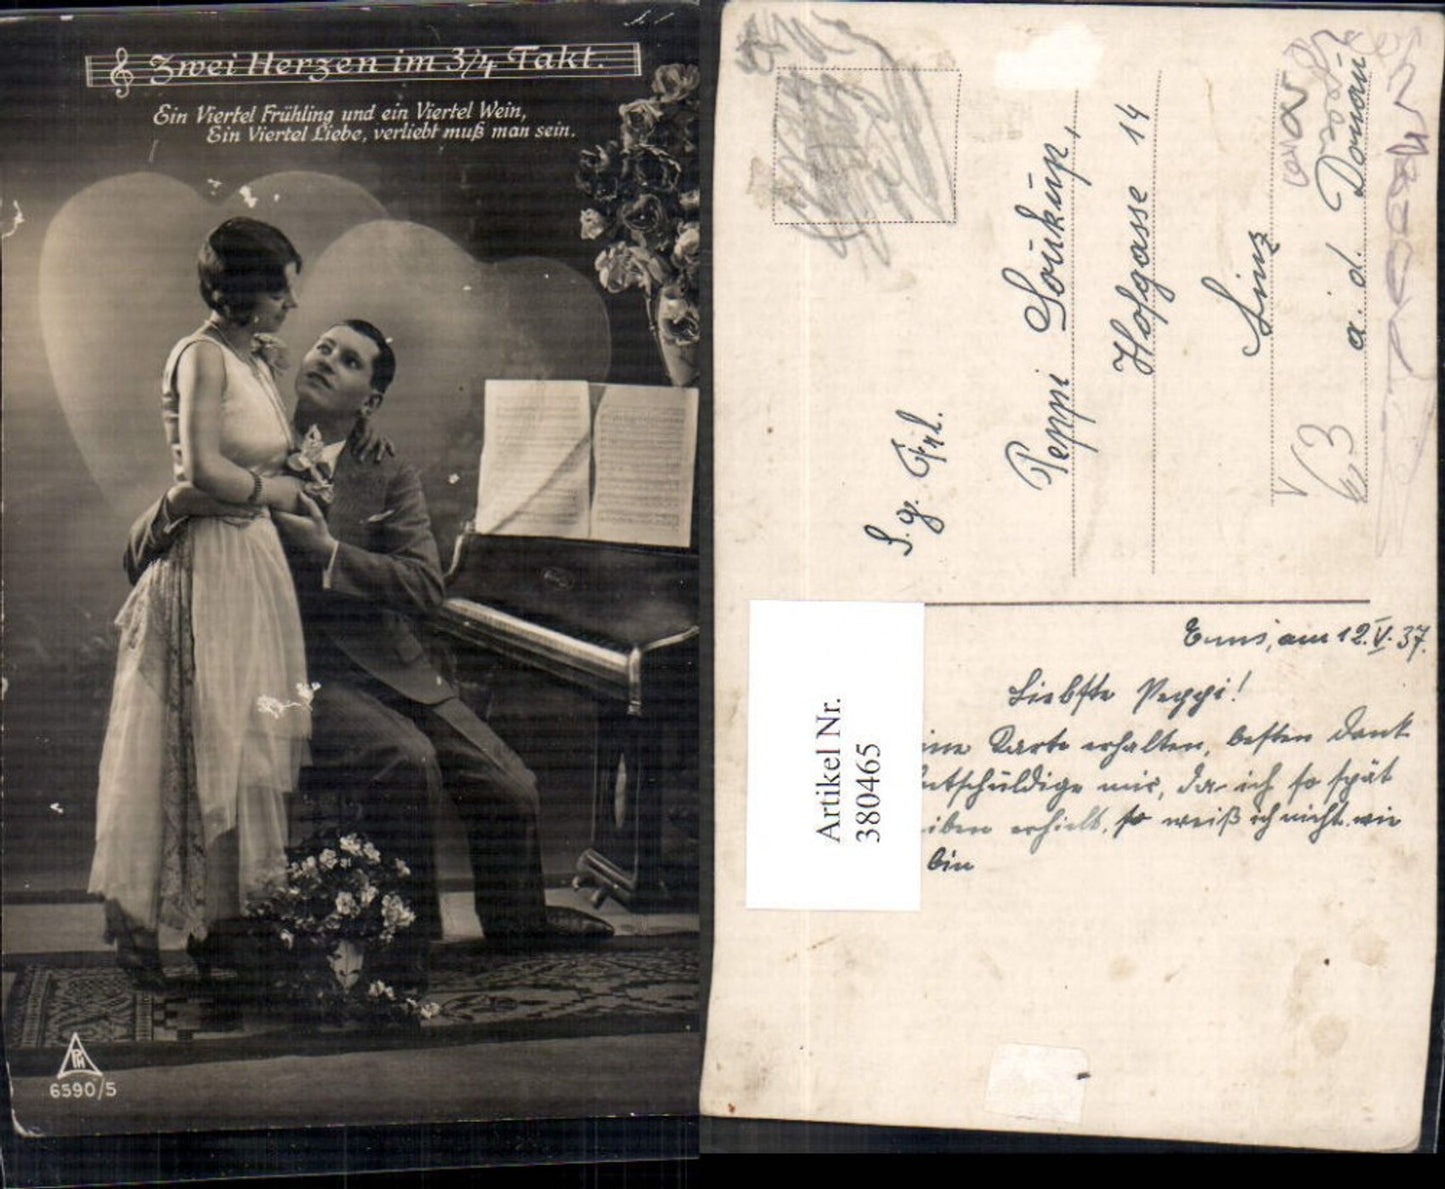 Zwei Herzen im 3/4 Takt.
Ein Viertel Frühling und ein Viertel Wein,
Ein Viertel Liebe, verliebt muß man sein.
PH
6590/5
S. g. Frl.
Peppi Soukup,
Hofgasse 14
Linz
a. d. Donau
63
Artikel Nr.
380465
Enns, am 12. V. 37.
Liebste Peppi!
ine Karte erhalten, besten Dank
ntschuldige mir, da ich so spät
iben erhielt, so weiß ich nicht wie
bin